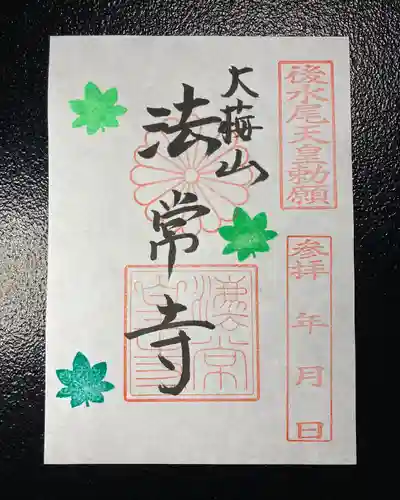 後水尾天皇勅願
参拝 年 月 日
大梅山
法常寺